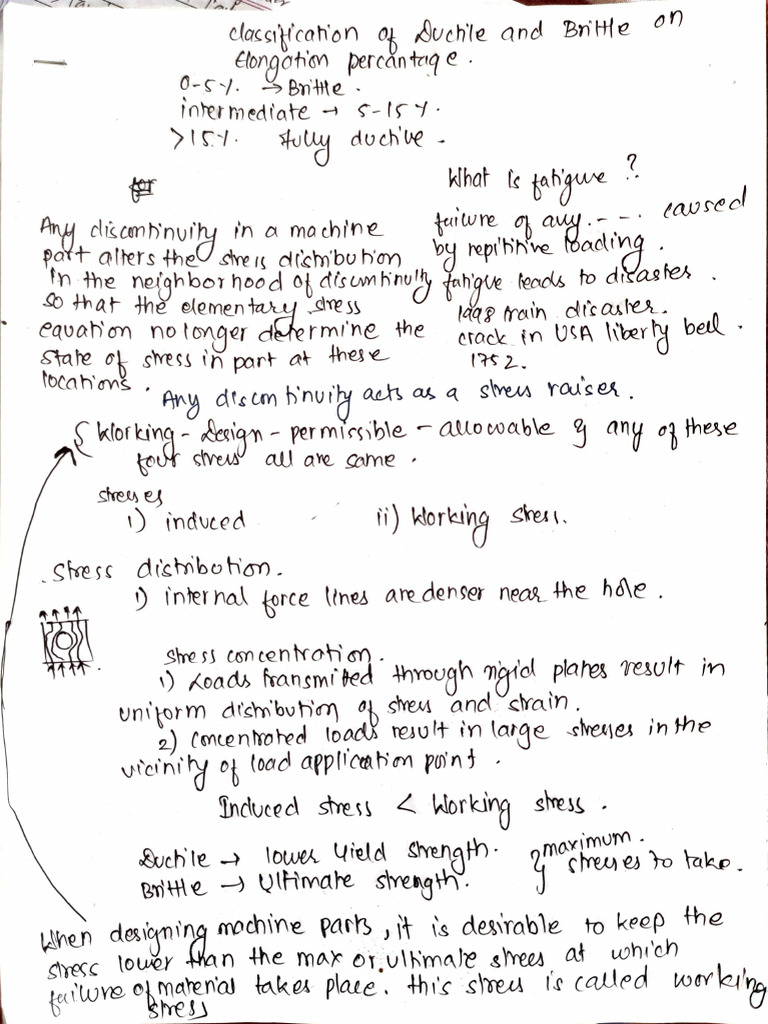 classification of Ductile and Brittle on
Elongation percantage.
0-5%. → Brittle.
intermediate → 5-15%.
>15%. fully ductive.
What is fatigure ?
failure of any - - - . caused
by repititive loading.
fatigue leads to disaster.
1998 train disaster.
crack in USA liberty bell.
1752.
Any discontinuity in a machine
part alters the stress distribution
in the neighborhood of discontinuity
so that the elementary stress
equation no longer determine the
state of stress in part at these
locations.
Any discontinuity acts as a stress raiser.
{ Working - Design - permissible - allowable } any of these
four stress all are same.
stresses
i) induced ii) Working stress.
. Stress distribution.
1) internal force lines are denser near the hole.
stress concentration.
1) Loads transmitted through rigid plates result in
uniform distribution of stress and strain.
2) concentrated loads result in large stresses in the
vicinity of load application point.
Induced stress < Working stress.
Ductile → lower Yield strength. } maximum.
Brittle → Ultimate strength. stresses to take.
When designing machine parts, it is desirable to keep the
stress lower than the max or ultimate stress at which
failure of material takes place. this stress is called working
stress